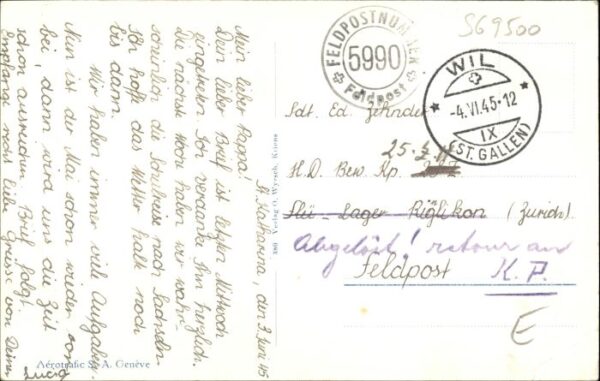 St. Katharina, den 3. Juni 45
Mein lieber Pappa!
Dein lieber Brief ist letzten Mittwoch
eingetreten. Ich verdanke ihn herzlich.
Die nächste Woche haben wir wahr-
scheinlich die Schulreise nach Sachseln.
Ich hoffe das Wetter halte noch
bis dann.
Wir haben immer viel Aufgaben.
Nun ist der Mai schon wieder vor-
bei, dann wird uns die Zeit
schon ausreichen. Brief folgt.
Empfange noch liebe Grüsse von Deiner
Lucia
Aérotrafic S. A. Genève
380 Verlag O. Wyrsch, Kriens
FELDPOSTNUMMER
5990
Feldpost
S69500
WIL
-4.VI.45-12
IX
(ST. GALLEN)
Sdt. Ed. Zehnder
25.
H.D. Bew. Kp.
Flü-Lager Rüglikon (Zürich)
Abgelöst! retour an
Feldpost K.P.
E